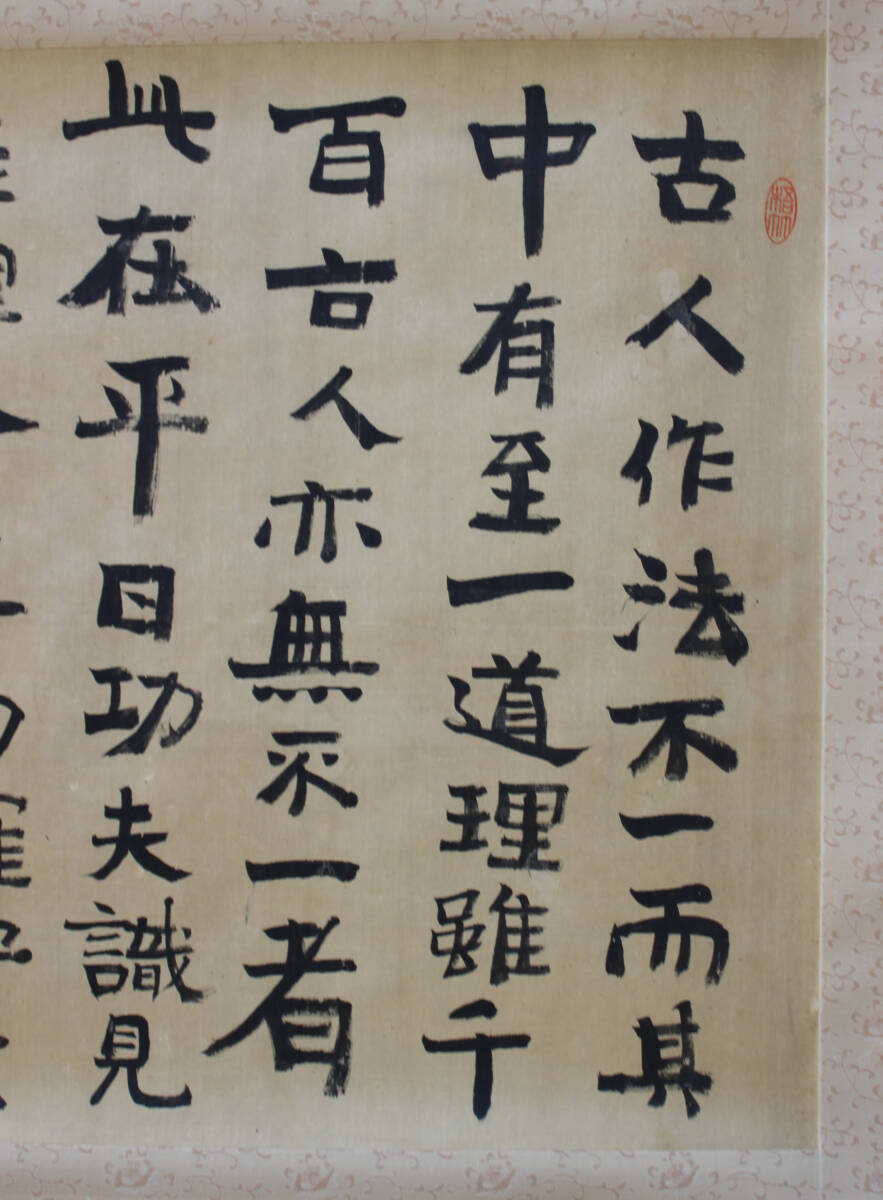 古人作法不一而其
中有至一道理雖千
百古人亦無不一者
此在平日功夫識見